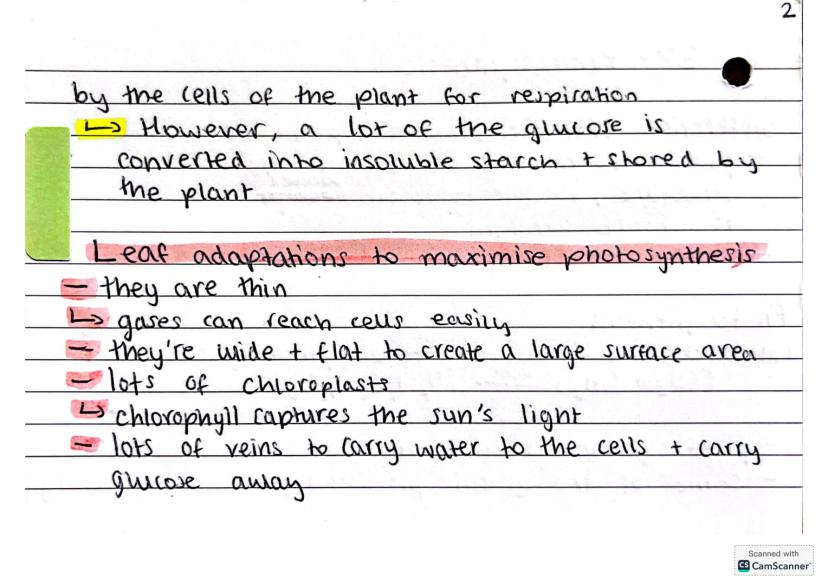 2
by the cells of the plant for respiration
↳ However, a lot of the glucose is
converted into insoluble starch + stored by
the plant
Leaf adaptations to maximise photosynthesis
- they are thin
↳ gases can reach cells easily
- they're wide + flat to create a large surface area
- lots of chloroplasts
↳ chlorophyll captures the sun's light
- lots of veins to carry water to the cells + carry
glucose away
Scanned with
CS CamScanner